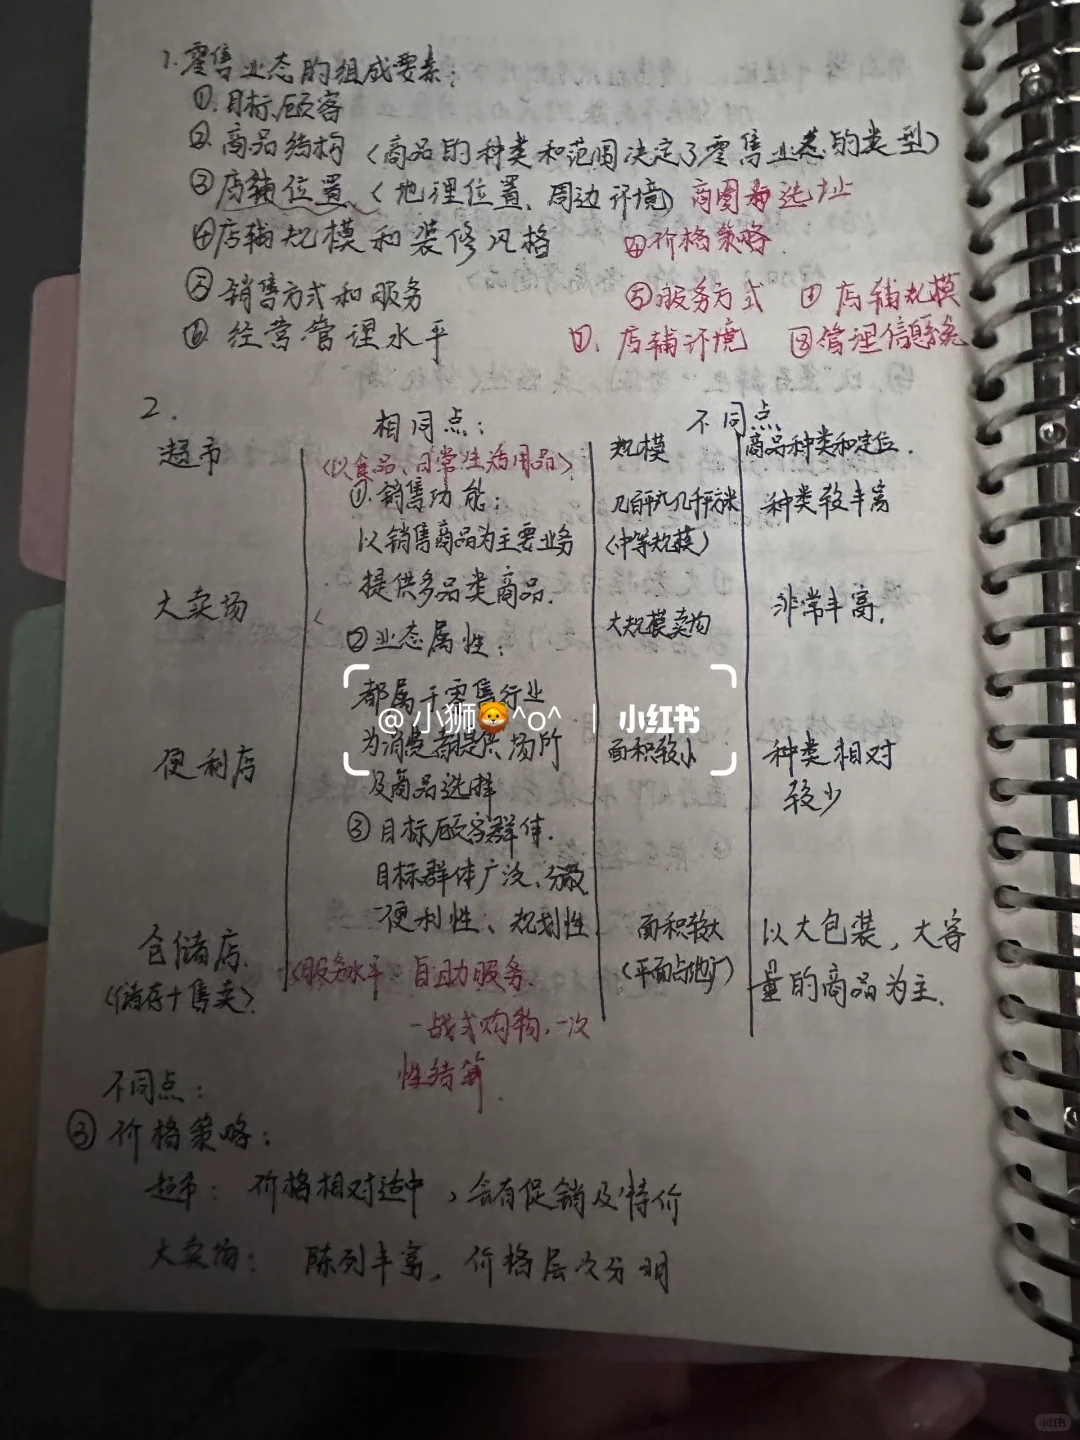 1.零售业态的组成要素:
①.目标顾客
②.商品结构（商品的种类和范围决定了零售业态的类型）
③店铺位置（地理位置、周边环境）商圈和选址
④店铺规模和装修风格 ④价格策略
⑤销售方式和服务 ⑤服务方式 ⊕店铺规模
⑥.经营管理水平 ⑦.店铺环境 ⑧管理信息系统
2.
相同点: 不同点
超市 （以食品、日常生活用品） 规模 商品种类和定位.
①.销售功能: 几百平方几千平方米 种类较丰富
以销售商品为主要业务 （中等规模）
提供多品类商品.
大卖场 大规模卖场 非常丰富.
②业态属性:
都属于零售行业
@小狮🦁^o^ | 小红书
为消费者提供场所
便利店 面积较小 种类相对
较少
及商品选择
③目标顾客群体.
目标群体广泛、分散
便利性、规划性
仓储店. 面积较大 以大包装，大客
（储存+售卖） （平面占地广） 量的商品为主.
（服务水平 自助服务.
一战式购物，一次
性结算.
不同点:
③价格策略:
超市: 价格相对适中，会有促销及特价
大卖场: 陈列丰富，价格层次分明
小红书